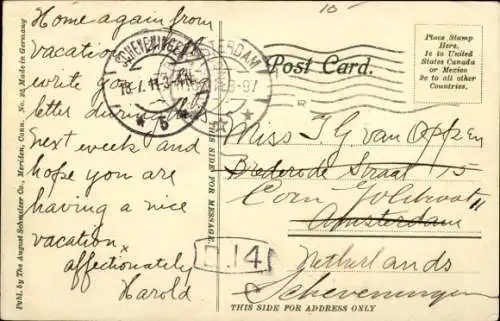 Home again from
vacation
write you
letter during
next week and
hope you are
having a nice
vacation
affectionately
Harold
Publ. by The August Schmelzer Co., Meriden, Conn. No. 95 Made in Germany
THIS SIDE FOR MESSAGE.
10
Post Card.
Place Stamp
Here.
1c to United
States Canada
or Mexico
2c to all other
Countries.
SCHEVENINGEN
STERDAM
5
Miss J G van Oppen
Brederode Straat 15
Amsterdam
Netherlands
Scheveningen
14
THIS SIDE FOR ADDRESS ONLY